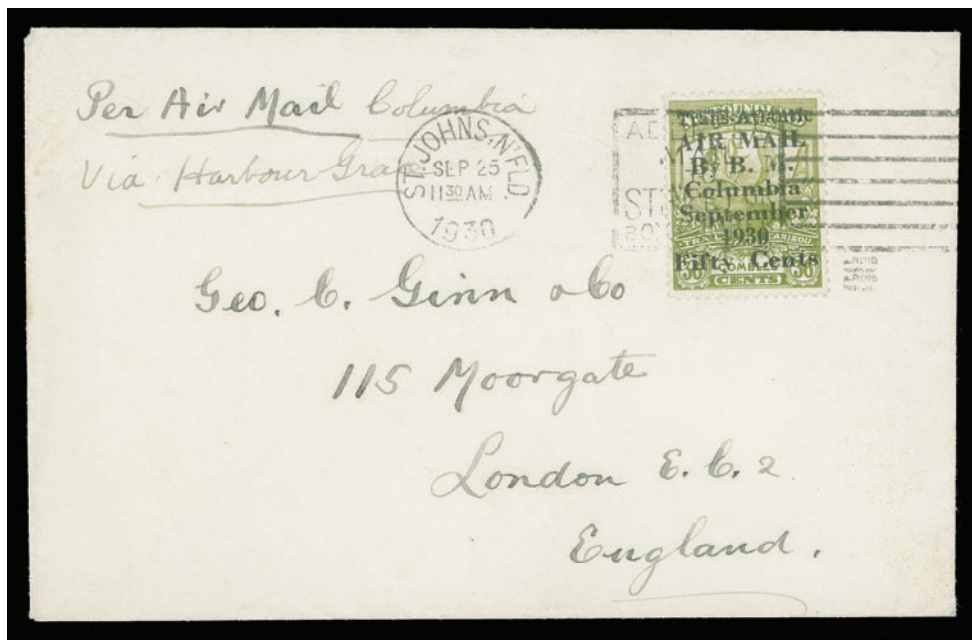 Per Air Mail Columbia
Via Harbour Grace
ST. JOHNS, N'FLD.
SEP 25
11 30 AM
1930
Trans-Atlantic
AIR MAIL
By B. M.
Columbia
September
1930
Fifty Cents
36 CENTS 36
Geo. C. Ginn & Co
115 Moorgate
London E. C. 2.
England.